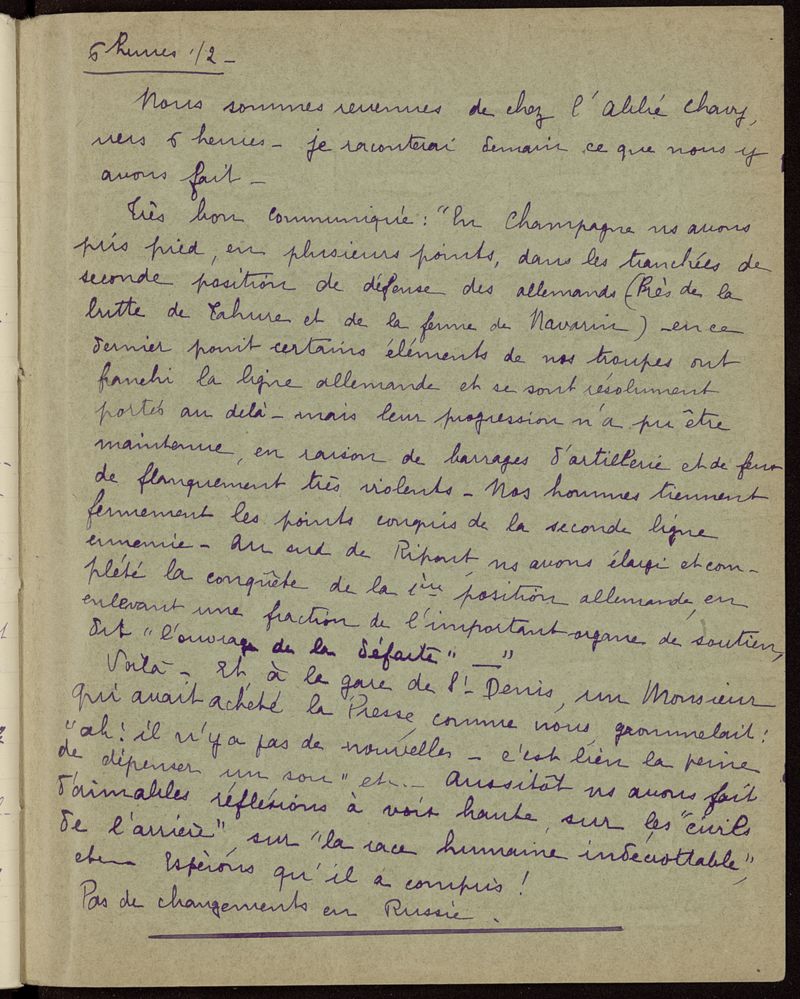 6 heures 1/2 –
Nous sommes revenues de chez l'Abbé Chavy,
vers 6 heures – je raconterai demain ce que nous y
avons fait –
Très bon communiqué : "En Champagne ns avons
pris pied, en plusieurs points, dans les tranchées de
seconde position de défense des allemands (Près de la
butte de Tahure et de la ferme de Navarin) – en ce
dernier point certains éléments de nos troupes ont
franchi la ligne allemande et se sont résolument
portés au delà – mais leur progression n'a pu être
maintenue, en raison de barrages d'artillerie et de feux
de flanquement très violents – Nos hommes tiennent
fermement les points conquis de la seconde ligne
ennemie – Au sud de Ripont ns avons élargi et com-
plété la conquête de la 1ère position allemande, en
enlevant une fraction de l'important organe de soutien,
dit "l'ouvrage de la défaite" – "
Voilà – Et, à la gare de St Denis, un Monsieur
qui avait acheté la Presse, comme nous, grommelait :
"ah ! il n'y a pas de nouvelles – c'est bien la peine
de dépenser un sou" etc. – Aussitôt ns avons fait
d'aimables réfléxions à voix haute, sur les "civils
de l'arrière", sur "la race humaine indécrottable",
etc – Espèrons qu'il a compris !
Pas de changements en Russie.